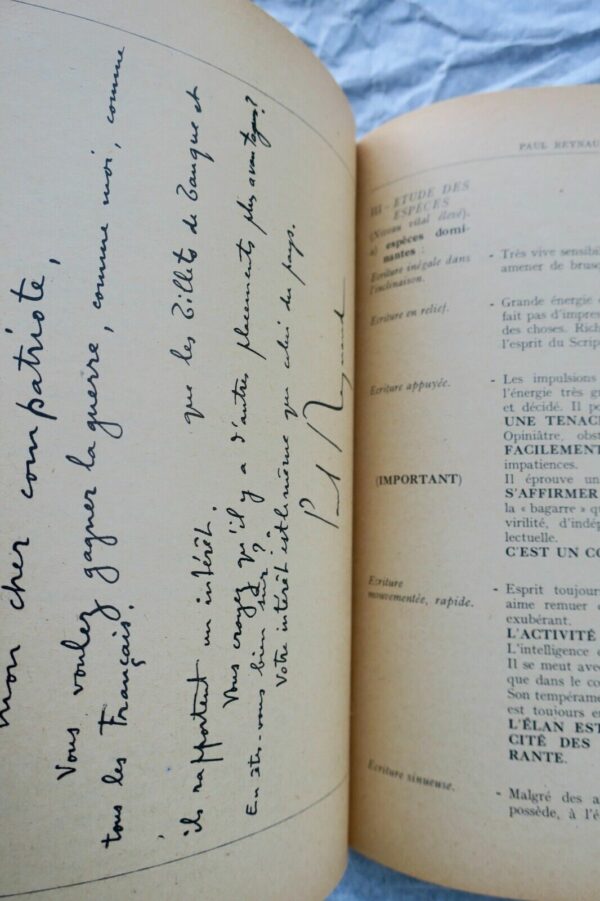 mon cher compatriote,
Vous voulez gagner la guerre, comme moi, comme
tous les Français.
que les Billets de Banque et
ils rapportent un intérêt.
Vous croyez qu'il y a d'autres placements plus avantageux?
En êtes-vous bien sûr?
Votre intérêt est le même que celui du pays.
Paul Reynaud
PAUL REYNAU
III - ETUDE DES
ESPÈCES
(Niveau vital élevé).
a) espèces domi-
nantes :
Ecriture inégale dans
l'inclinaison.
- Très vive sensibil
amener de brusq
Ecriture en relief.
- Grande énergie d
fait pas d'impres
des choses. Rich
l'esprit du Scrip
Ecriture appuyée.
- Les impulsions
l'énergie très gr
et décidé. Il po
UNE TENACI
Opiniâtre, obst
FACILEMENT
impatiences.
(IMPORTANT)
Il éprouve un
S'AFFIRMER
la « bagarre » qu
virilité, d'indép
lectuelle.
C'EST UN CO
Ecriture
mouvementée, rapide.
- Esprit toujour
aime remuer
exubérant.
L'ACTIVITÉ
L'intelligence
Il se meut ave
que dans le co
Son tempérame
est toujours e
L'ÉLAN EST
CITÉ DES
RANTE.
Ecriture sinueuse.
- Malgré des a
possède, à l'é